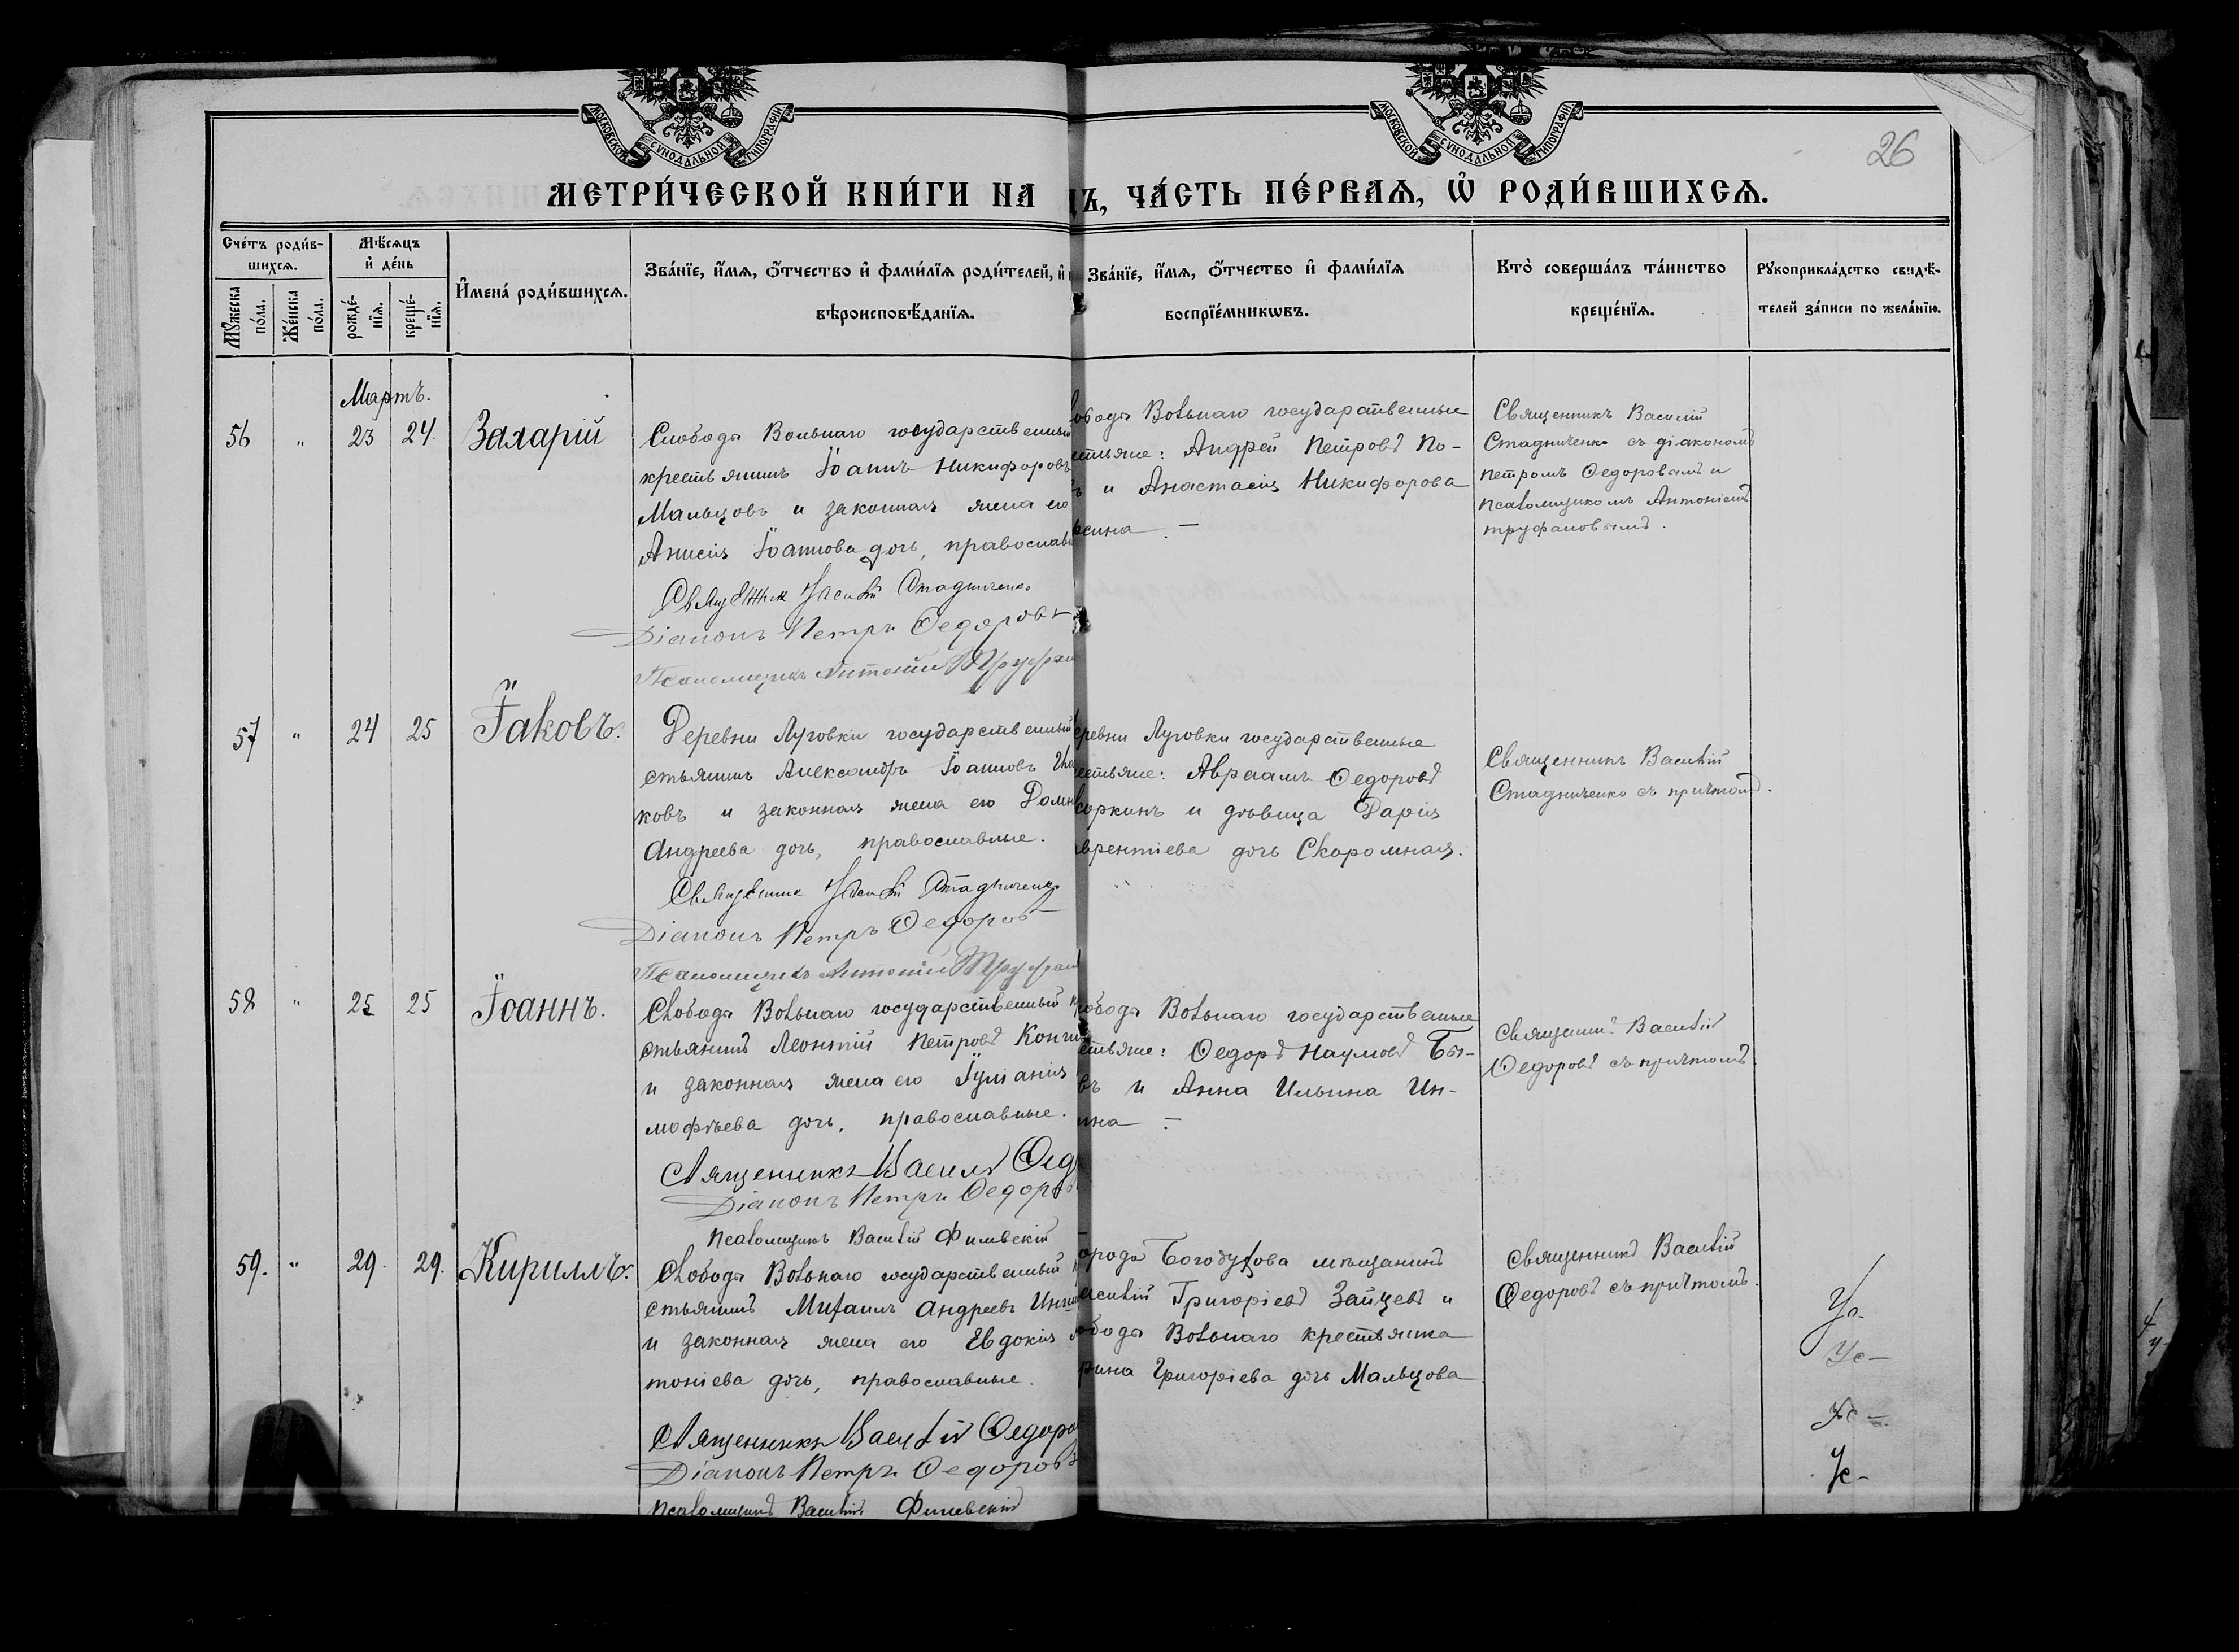 МОСКОВСКОЙ СУНОДАЛЬНОЙ ТИПОГРАФІИ
МОСКОВСКОЙ СУНОДАЛЬНОЙ ТИПОГРАФІИ
26
МЕТРИ́ЧЕСКОЙ КНИ́ГИ НА
ДЪ, ЧА́СТЬ ПЕ́РВАѦ, Ѡ҆ РОДИ́ВШИХСѦ.
Сче́тъ роди́в-
шихсѧ.
Мѣ́сѧцъ
и҆ де́нь
Мꙋ́жеска
по́ла.
Же́нска
по́ла.
рожде́-
нїѧ.
креще́-
нїѧ.
И҆мена̀ роди́вшихсѧ.
Зва́нїе, и҆́мѧ, ѻ҆́тчество и҆ фами́лїѧ роди́телей, и҆
вѣроисповѣ́данїѧ.
Зва́нїе, и҆́мѧ, ѻ҆́тчество и҆ фами́лїѧ
воспрїе́мникѡвъ.
Кто̀ соверша́лъ та́инство
креще́нїѧ.
Рꙋкоприкла́дство свидѣ́-
телей за́писи по жела́нїю.
Мартъ.
56 " 23 24. Захарій
Слободы Вольнаго государственный
крестьянинъ Іоаннъ Никифоровъ
Мальцовъ и законная жена его
Анисія Іоаннова дочь, православ
Священник Василій Стадниченко
Діаконъ Петръ Ѳедоровъ
Псаломщикъ Антоній Труфан
ободы Вольнаго государственные
стьяне: Андрей Петровъ По-
ъ и Анастасія Никифорова
сина —
Священникъ Василій
Стадниченко съ діакономъ
Петромъ Ѳедоровымъ и
псаломщикомъ Антоніемъ
Труфановымъ.
57 " 24 25 Іаковъ.
Деревни Луговки государственный
стьянинъ Александръ Іоанновъ
ковъ и законная жена его Домн
Андреева дочь, православные.
Священник Василій Стадниченко
Діаконъ Петръ Ѳедоров
Псаломщикъ Антоній Труфан
еревни Луговки государственные
естьяне: Авраамъ Ѳедоровъ
соркинъ и дѣвица Дарія
врентіева дочь Скоромная.
Священникъ Василій
Стадниченко съ причтомъ.
58 " 25 25 Іоаннъ.
Слободы Вольнаго государственный к
стьянинъ Леонтій Петровъ
и законная жена его Іуліанія
мофѣева дочь, православные.
Священникъ Василій Ѳед
Діаконъ Петръ Ѳедоров
Псаломщикъ Василій Филевскій
ободы Вольнаго государственные
стьяне: Ѳедоръ Наумовъ Бы-
въ и Анна Ильина Ин-
ина —
Священникъ Василій
Ѳедоровъ съ причтомъ.
59. " 29. 29. Кириллъ.
Слободы Вольнаго государственный
стьянинъ Михаилъ Андреевъ
и законная жена его Евдокія
тоніева дочь, православные.
Священникъ Василій Ѳедоро
Діаконъ Петръ Ѳедоровъ
Псаломщикъ Василій Филевскій
орода Богодухова мѣщанинъ
асилій Григоріевъ Зайцевъ и
ободы Вольнаго крестьянка
рина Григоріева дочь Мальцова
Священникъ Василій
Ѳедоровъ съ причтомъ.